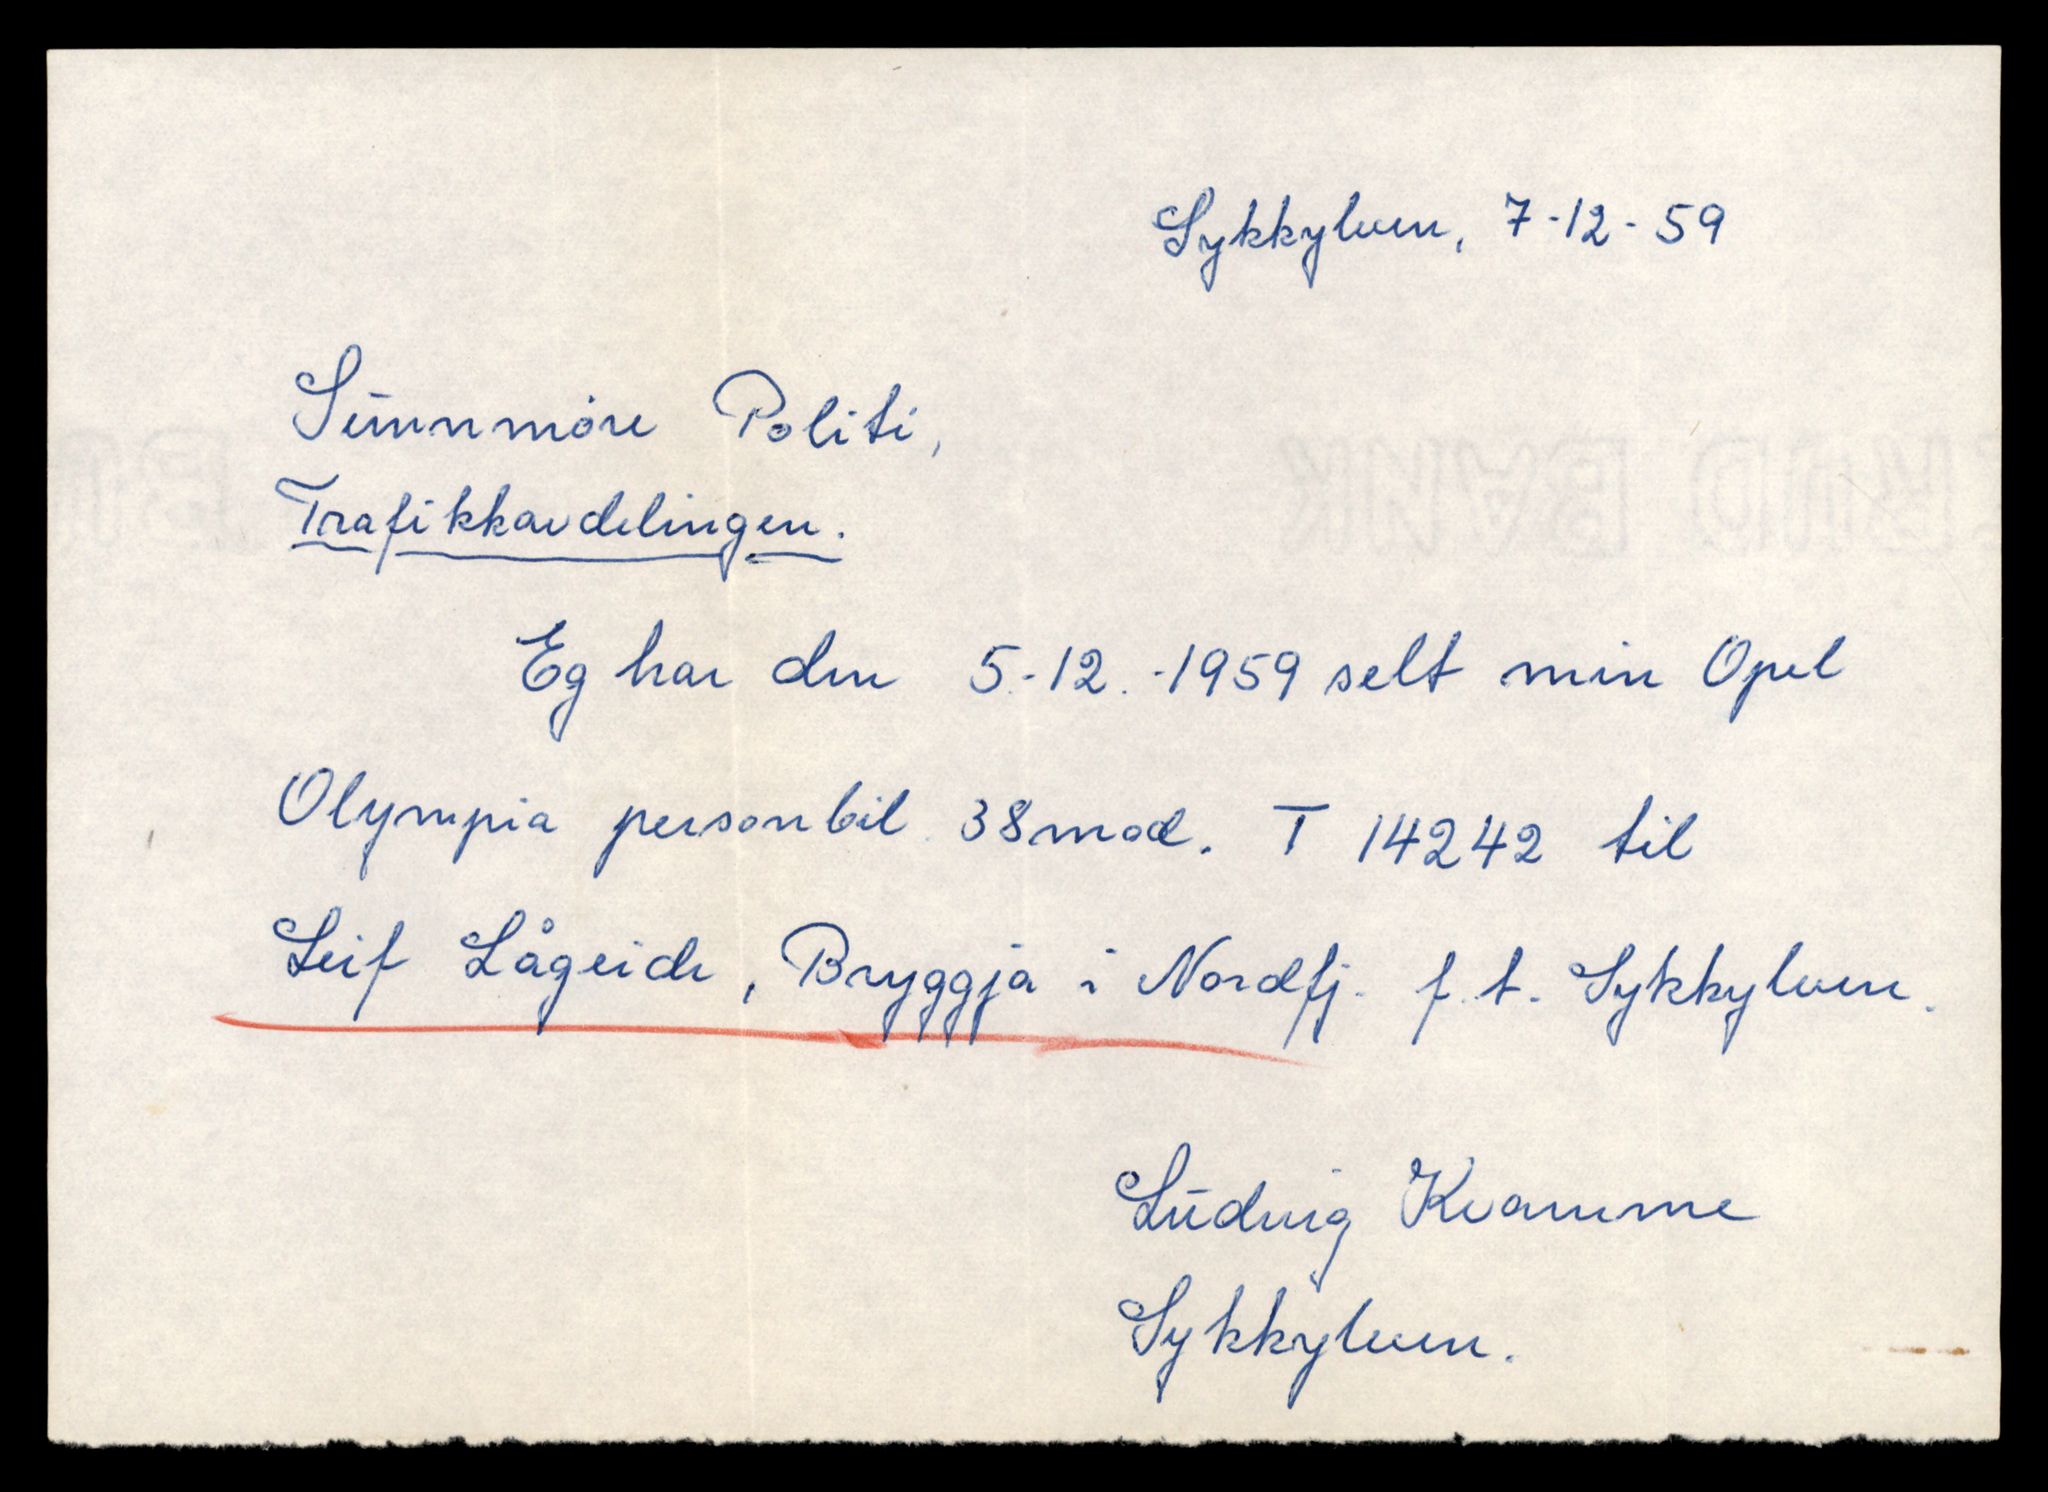 Sykkylven, 7-12-59
Sunnmöre Politi,
Trafikkavdelingen.
Eg har den 5.-12.-1959 selt min Opel
Olympia personbil 38 mod. T 14242 til
Leif Lågeide, Bryggja i Nordfj. f.t. Sykkylven.
Ludvig Kvamme
Sykkylven.